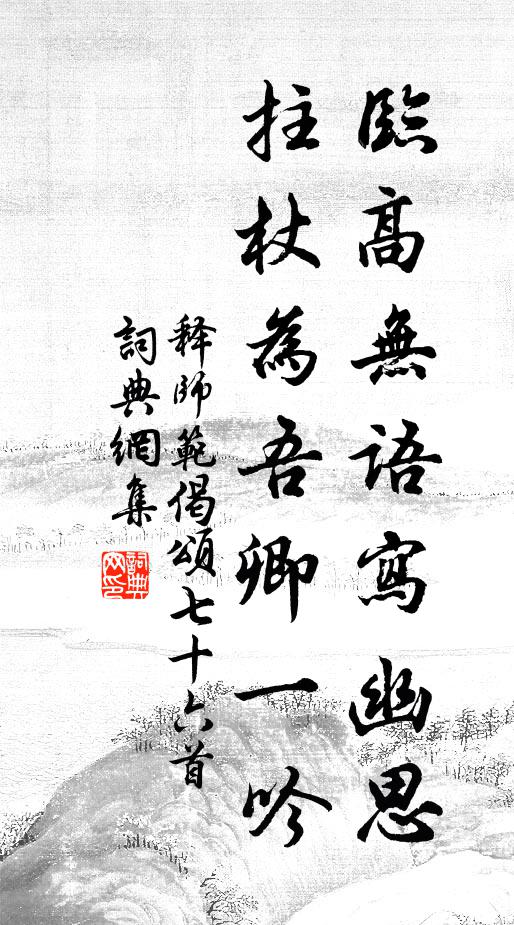 臨高無語寫幽思
拄杖為吾卿一吟
释師範偈頌七十六首
詞典網集
詞典网印